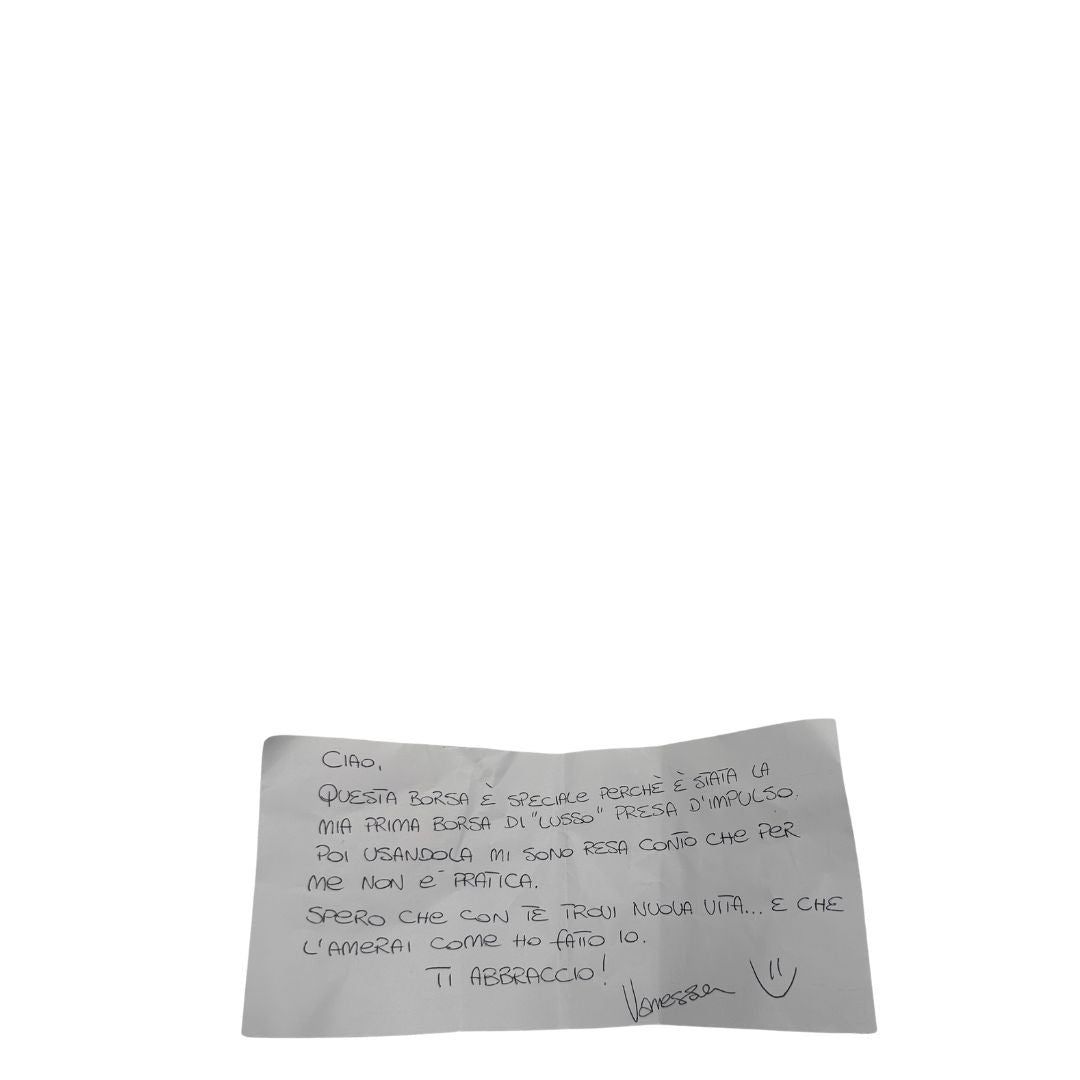 CIAO,
QUESTA BORSA È SPECIALE PERCHÈ È STATA LA
MIA PRIMA BORSA DI "LUSSO" PRESA D'IMPULSO.
POI USANDOLA MI SONO RESA CONTO CHE PER
ME NON E' PRATICA.
SPERO CHE CON TE TROVI NUOVA VITA... E CHE
L'AMERAI COME HO FATTO IO.
TI ABBRACCIO!
Vanessa